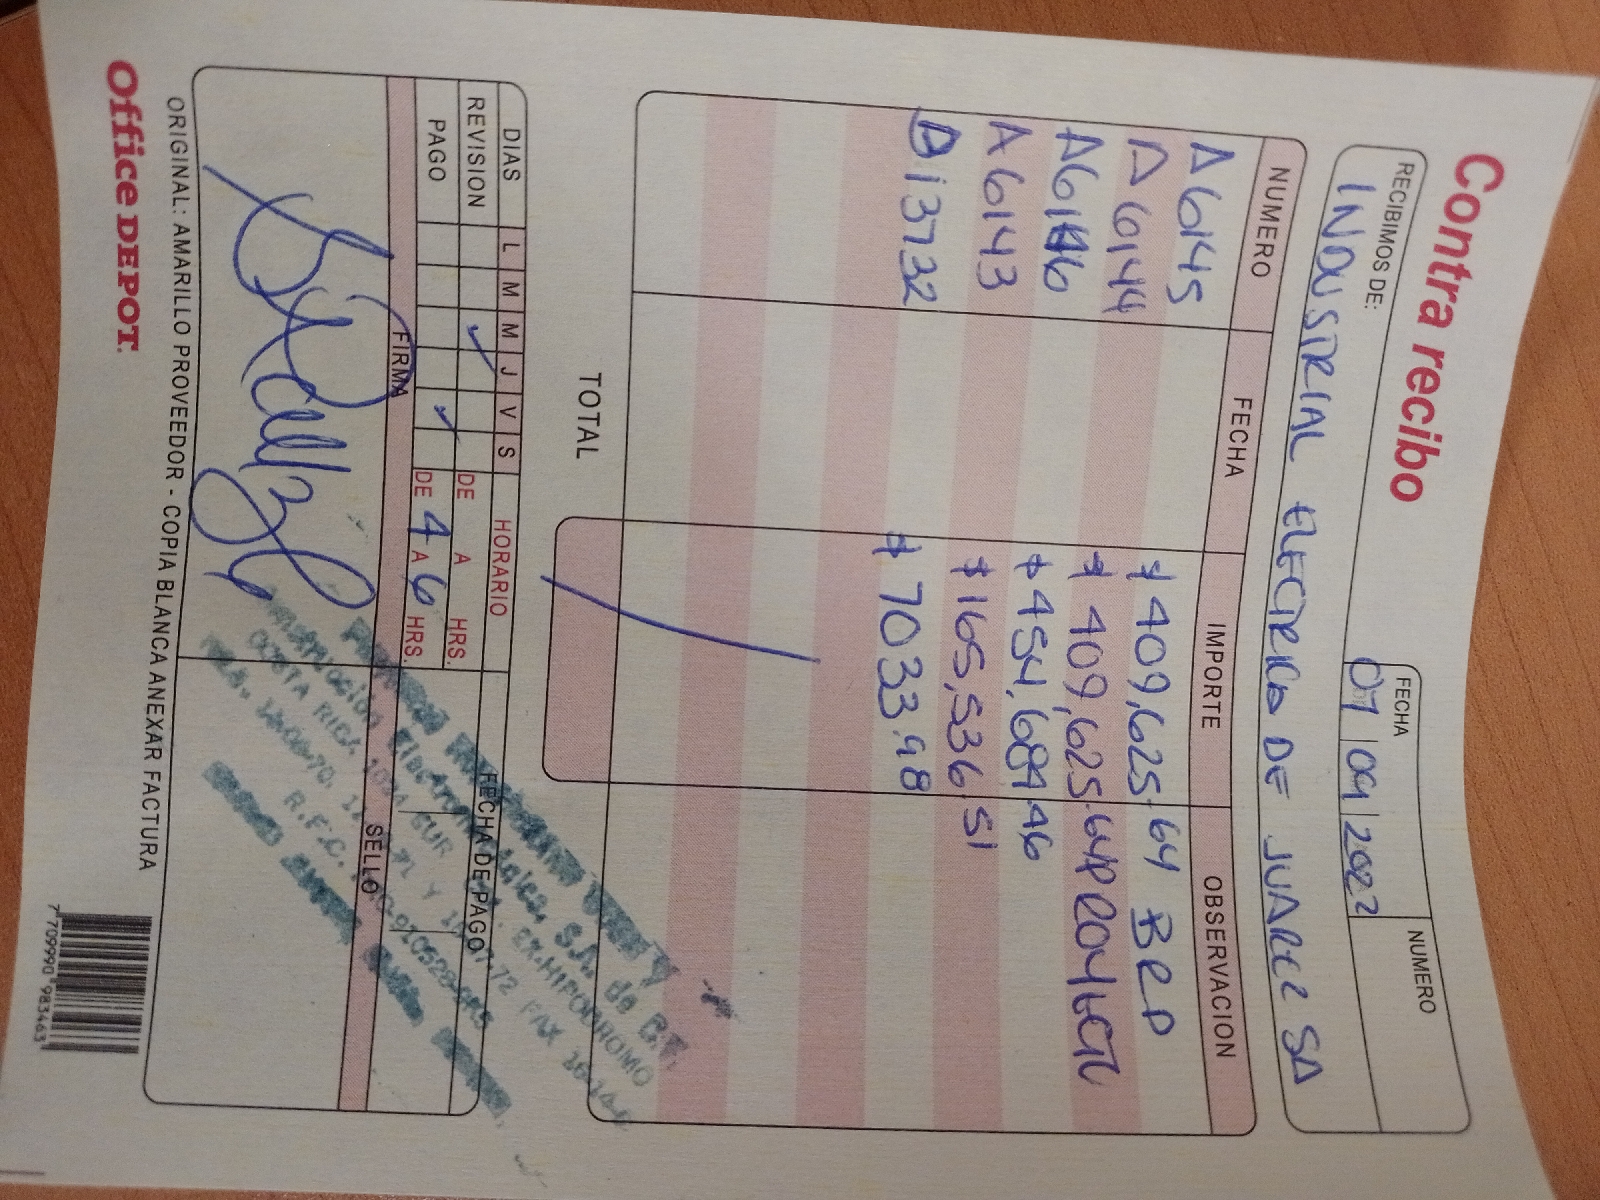 Contra recibo
FECHA NUMERO
07 09 2022
RECIBIMOS DE:
INDUSTRIAL ELECTRICO DE JUAREZ SA
NUMERO FECHA IMPORTE OBSERVACION
A6145 $ 409,625.64 BRP
A6144 $ 409,625.64 PROYECTO
A6146 $ 454,684.46
A6143 $ 165,536.51
D13732 $ 7033.98
TOTAL
DIAS L M M J V S HORARIO FECHA DE PAGO
REVISION ✓ DE A HRS.
PAGO ✓ DE 4 A 6 HRS.
FIRMA SELLO
S.A. de C.V.
COSTA RICA 1034 SUR EX.HIPODROMO
R.F.C.
ORIGINAL: AMARILLO PROVEEDOR - COPIA BLANCA ANEXAR FACTURA
Office DEPOT.
7 709990 983463